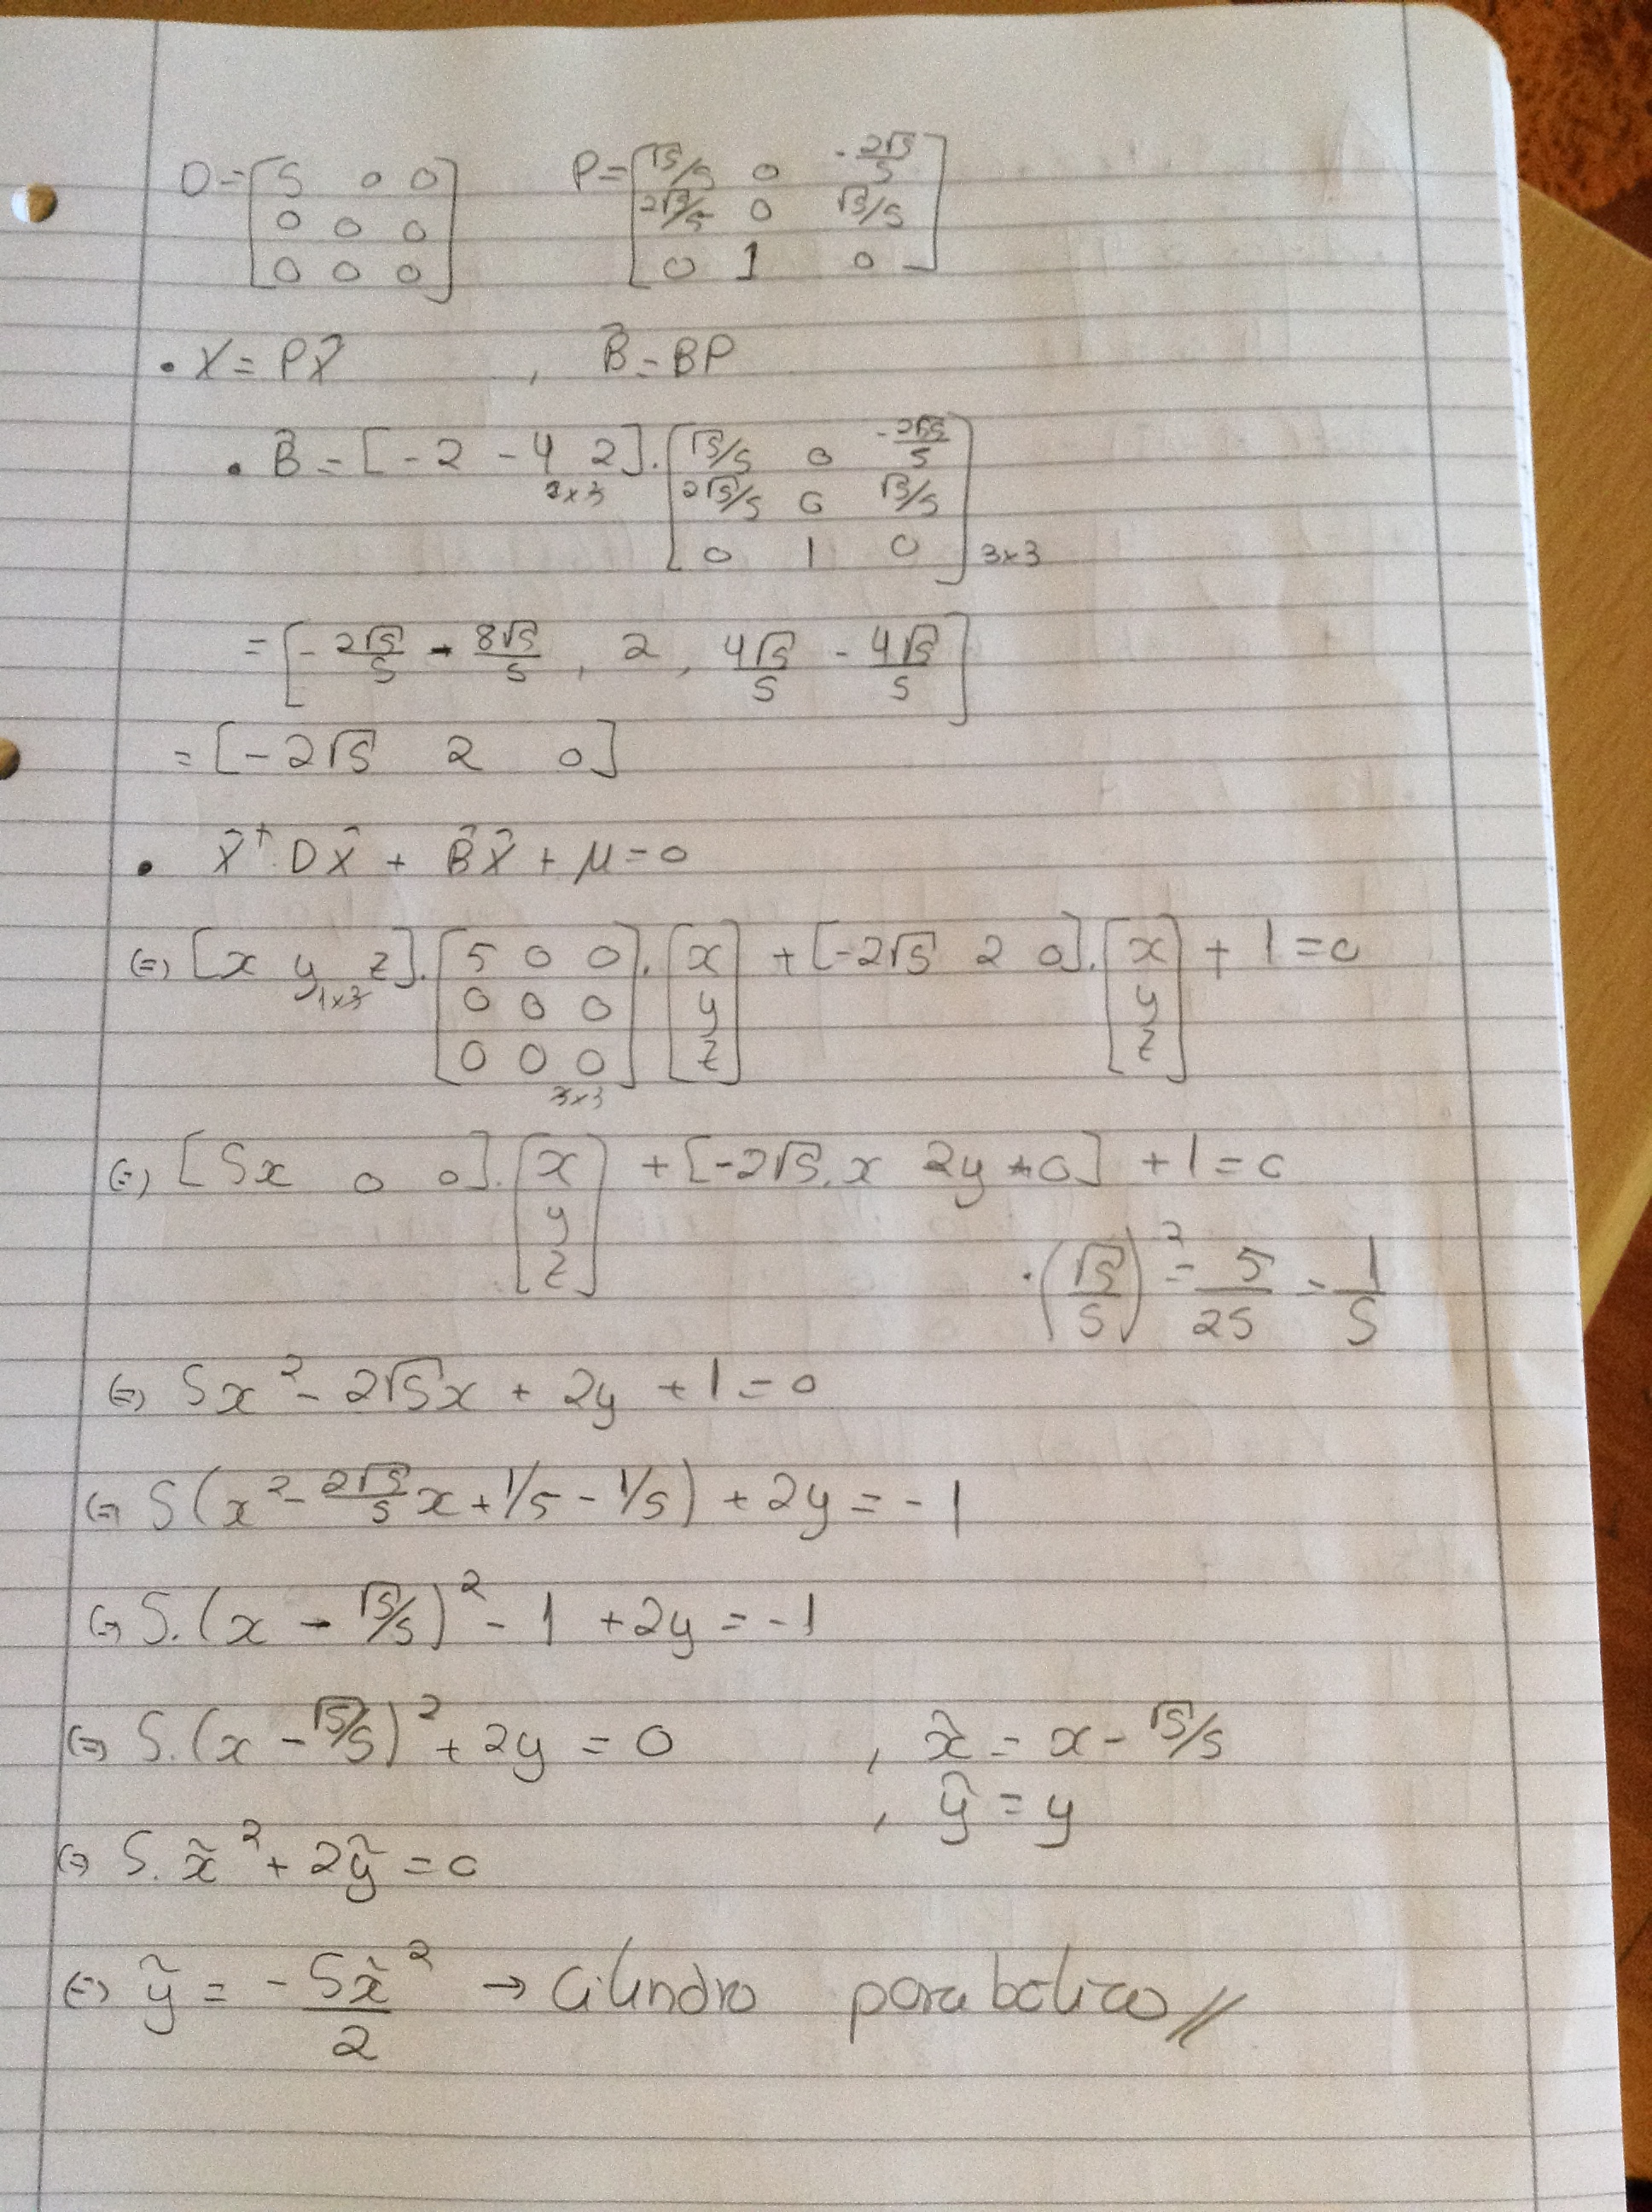 D = [5 0 0; 0 0 0; 0 0 0]    P = [√5/5 0 -2√5/5; 2√5/5 0 √5/5; 0 1 0]
• X = PX̂ , B̂ = BP
• B̂ = [-2 -4 2]₁ₓ₃ . [√5/5 0 -2√5/5; 2√5/5 0 √5/5; 0 1 0] 3x3
= [-2√5/5 - 8√5/5 , 2 , 4√5/5 - 4√5/5]
= [-2√5 2 0]
• X̂ᵀ DX̂ + B̂X̂ + μ = 0
(=) [x y z]₁ₓ₃ . [5 0 0; 0 0 0; 0 0 0]₃ₓ₃ . [x; y; z] + [-2√5 2 0] . [x; y; z] + 1 = 0
(=) [5x 0 0] . [x; y; z] + [-2√5.x 2y + 0] + 1 = 0
• (√5/5)² = 5/25 = 1/5
(=) 5x² - 2√5x + 2y + 1 = 0
(=) 5(x² - 2√5/5 x + 1/5 - 1/5) + 2y = -1
(=) 5.(x - √5/5)² - 1 + 2y = -1
(=) 5.(x - √5/5)² + 2y = 0 , x̃ = x - √5/5
, ỹ = y
(=) 5.x̃² + 2ỹ = 0
(=) ỹ = -5x̃²/2 → Cilindro parabólico //